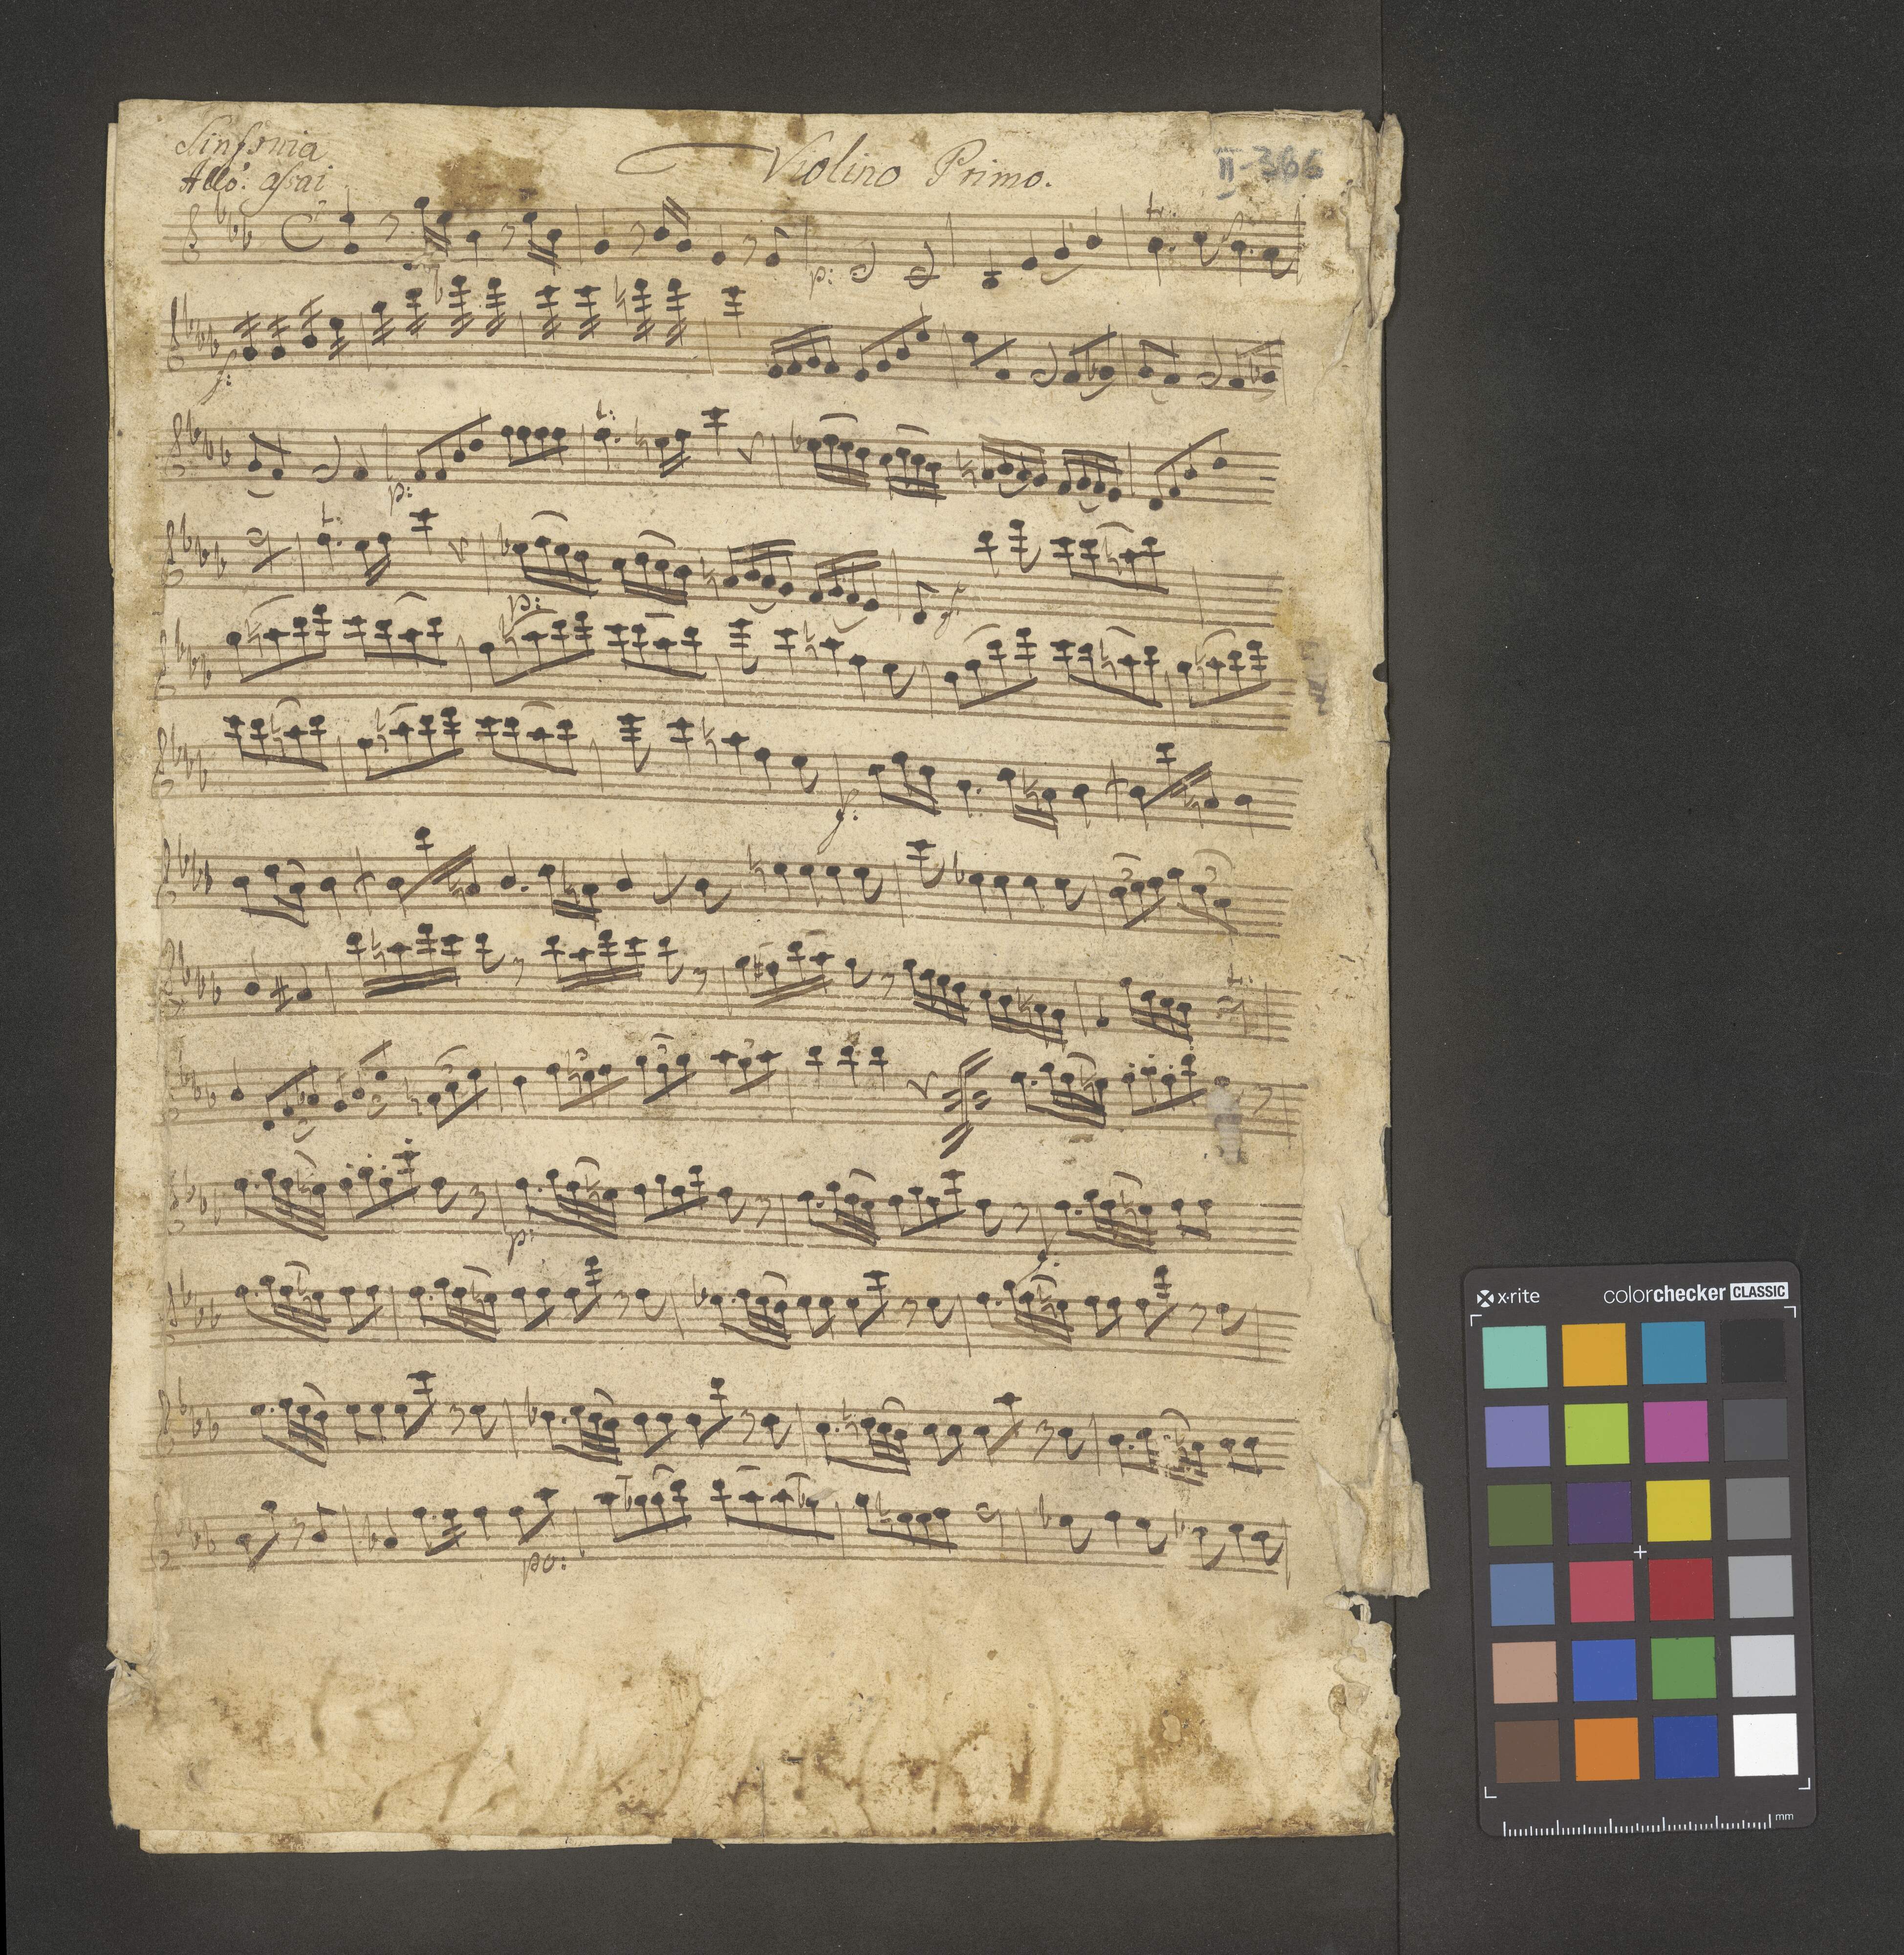 Sinfonia
Allo: assai
Violino Primo.
II-366
p:
f:
p:
p:
f
f:
p:
f.
po:
x-rite
colorchecker CLASSIC
mm